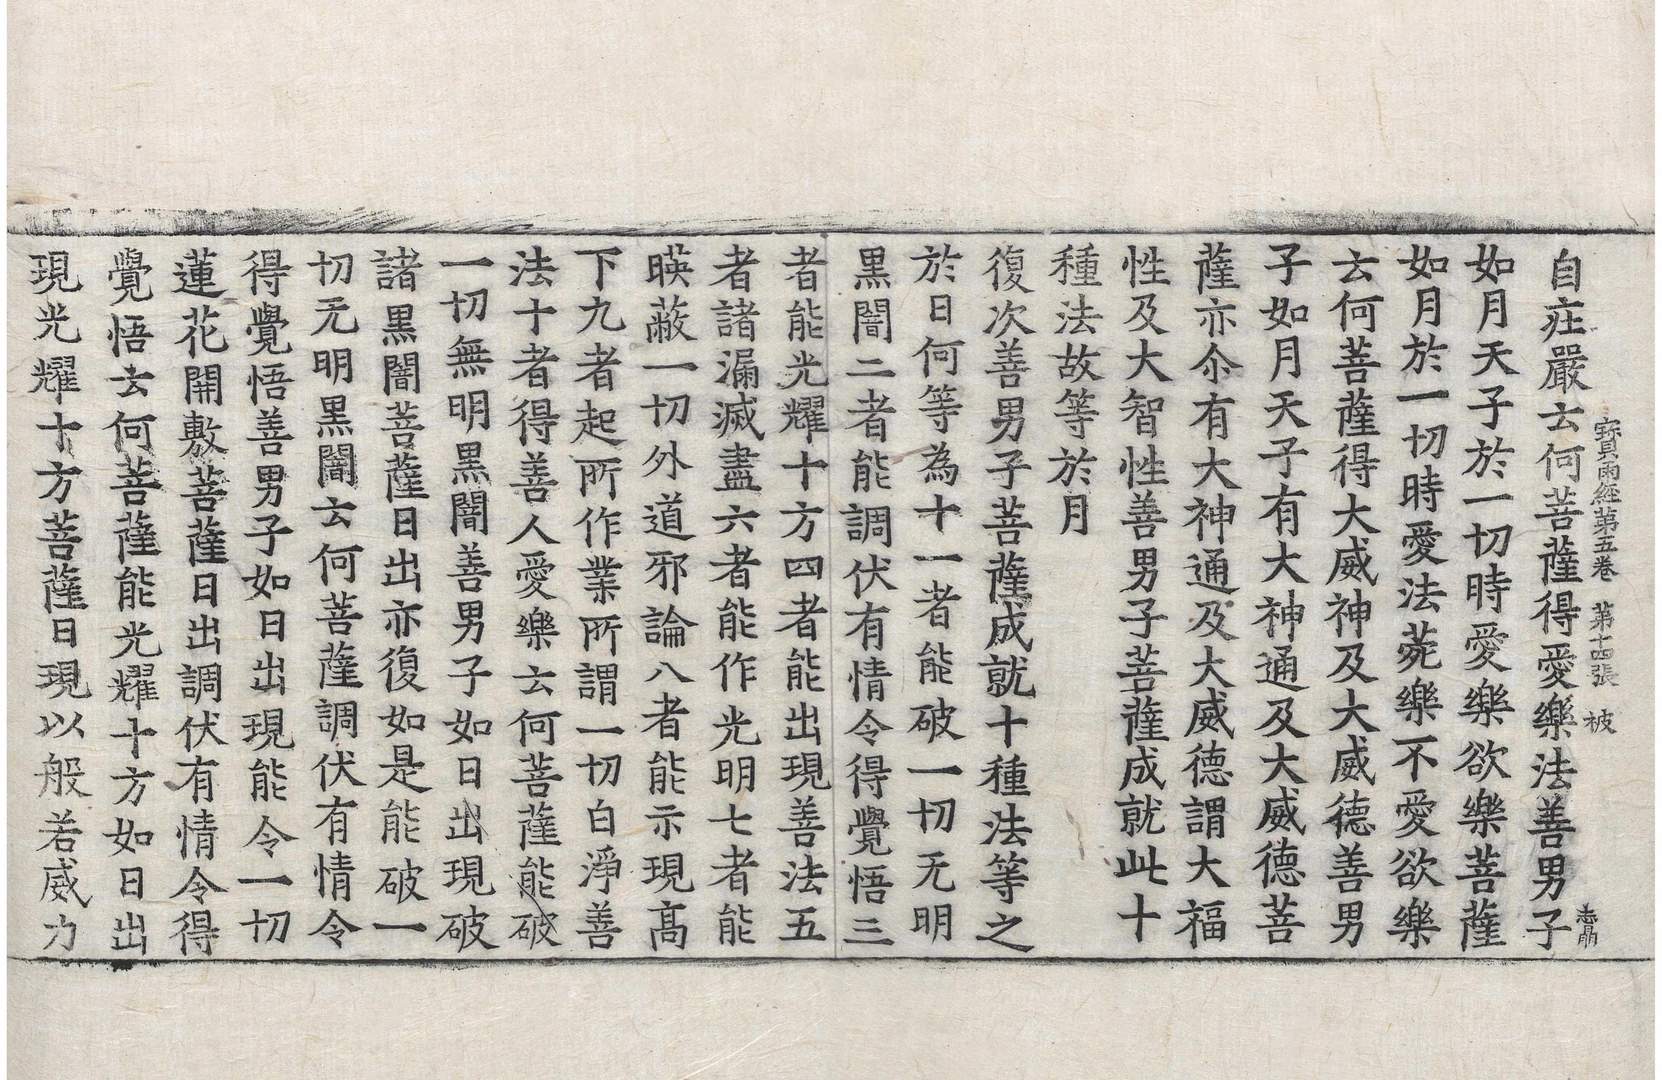 寳雨經第五卷 第十四張 被
自莊嚴云何菩薩得愛樂法善男子
如月天子於一切時愛樂欲樂菩薩
如月於一切時愛法菀樂不愛欲樂
云何菩薩得大威神及大威德善男
子如月天子有大神通及大威德菩
薩亦尒有大神通及大威德謂大福
性及大智性善男子菩薩成就此十
種法故等於月
復次善男子菩薩成就十種法等之
於日何等為十一者能破一切无明
黑闇二者能調伏有情令得覺悟三
者能光耀十方四者能出現善法五
者諸漏滅盡六者能作光明七者能
暎蔽一切外道邪論八者能示現髙
下九者起所作業所謂一切白淨善
法十者得善人愛樂云何菩薩能破
一切無明黑闇善男子如日出現破
諸黑闇菩薩日出亦復如是能破一
切无明黑闇云何菩薩調伏有情令
得覺悟善男子如日出現能令一切
蓮花開敷菩薩日出調伏有情令得
覺悟云何菩薩能光耀十方如日出
現光耀十方菩薩日現以般若威力